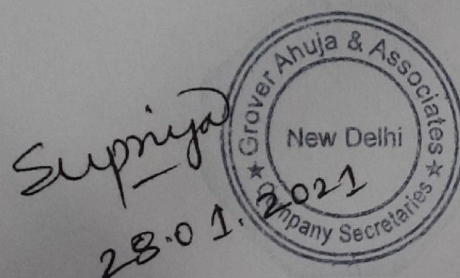 Supriya
28.01.2021
Grover Ahuja & Associates
New Delhi
★ Company Secretaries ★